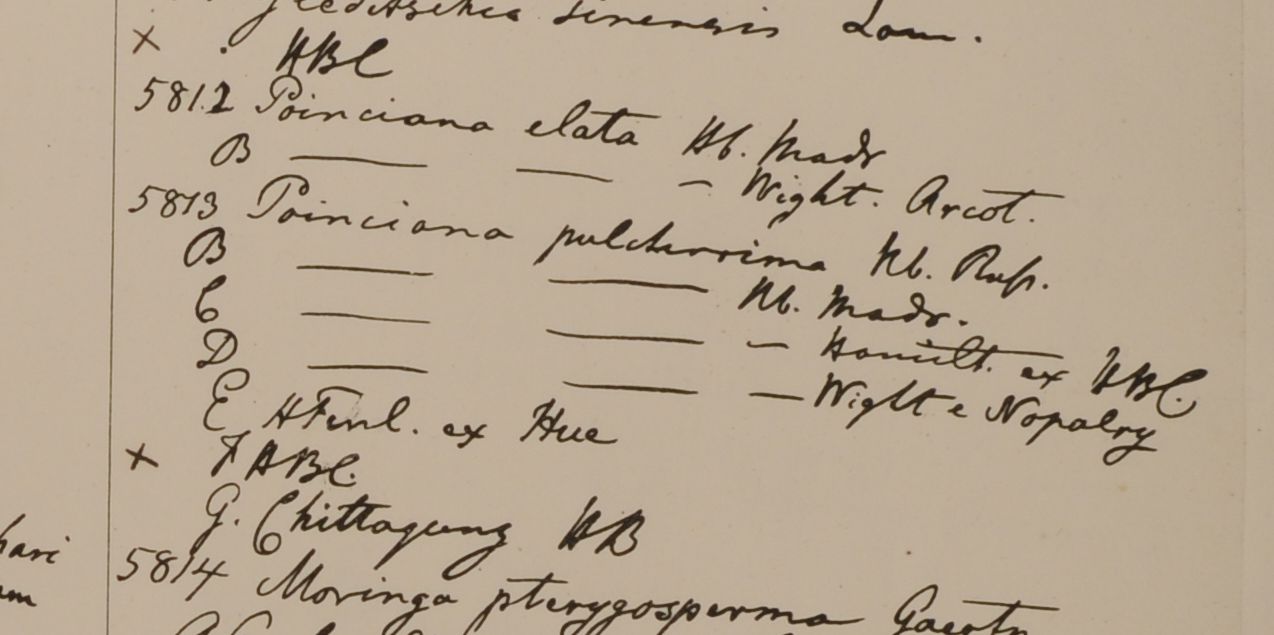 Gleditschia sinensis Lam.
× . HBC
5812 Poinciana elata Hb. Madr
B — — — Wight. Arcot.
5813 Poinciana pulcherrima Hb. Rup.
B — — Hb. Madr.
C — — — Hamilt. ex HBC.
D — — — Wight e Nopalry
E HFinl. ex Hue
× F HBC.
G. Chittagung HB
5814 Moringa pterygosperma Gaertn